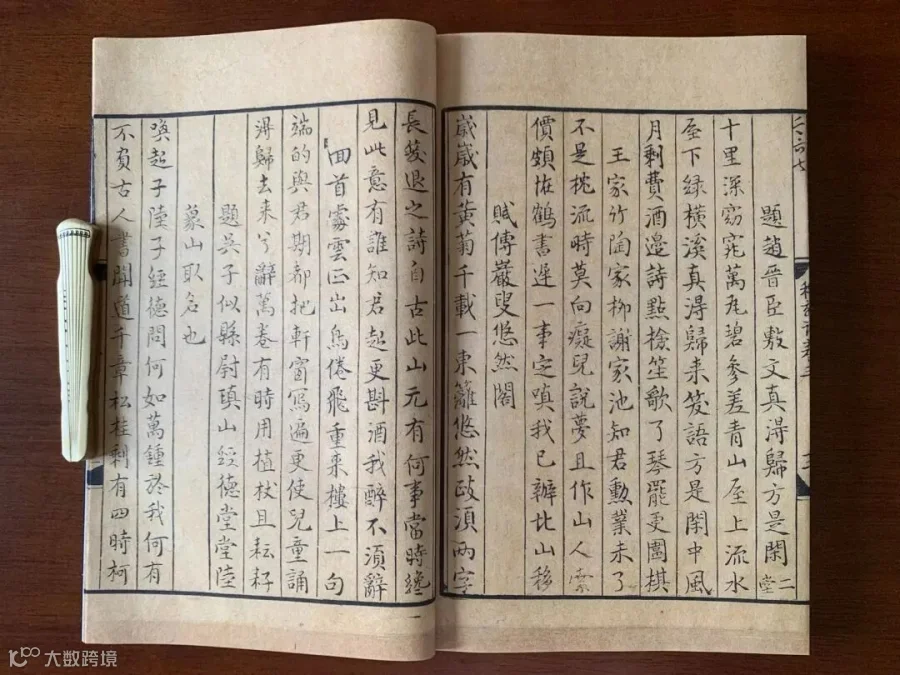 二六七
題趙晉臣敷文真淂歸方是閑二堂
十里深窈窕萬瓦碧參差青山屋上流水
屋下綠橫溪真淂歸來笑語方是閑中風
月剩費酒邊詩點檢笙歌了琴罷更圍棋
王家竹陶家柳謝家池知君勳業未了
不是枕流時莫向癡兒說夢且作山人索
價頗恠鶴書遲一事定嗔我已辦北山移
賦傅巖叟悠然閣
歲歲有黃菊千載一東籬悠然政須兩字
長笑退之詩自古此山元有何事當時纔
見此意有誰知君起更斟酒我醉不須辭
回首處雲正出鳥倦飛重來樓上一句
端的與君期都把軒窗寫遍更使兒童誦
淂歸去來兮辭萬卷有時用植杖且耘耔
題吳子似縣尉瑱山經德堂堂陸
象山取名也
喚起子陸子經德問何如萬鍾於我何有
不負古人書聞道千章松桂剩有四時柯
大数跨境